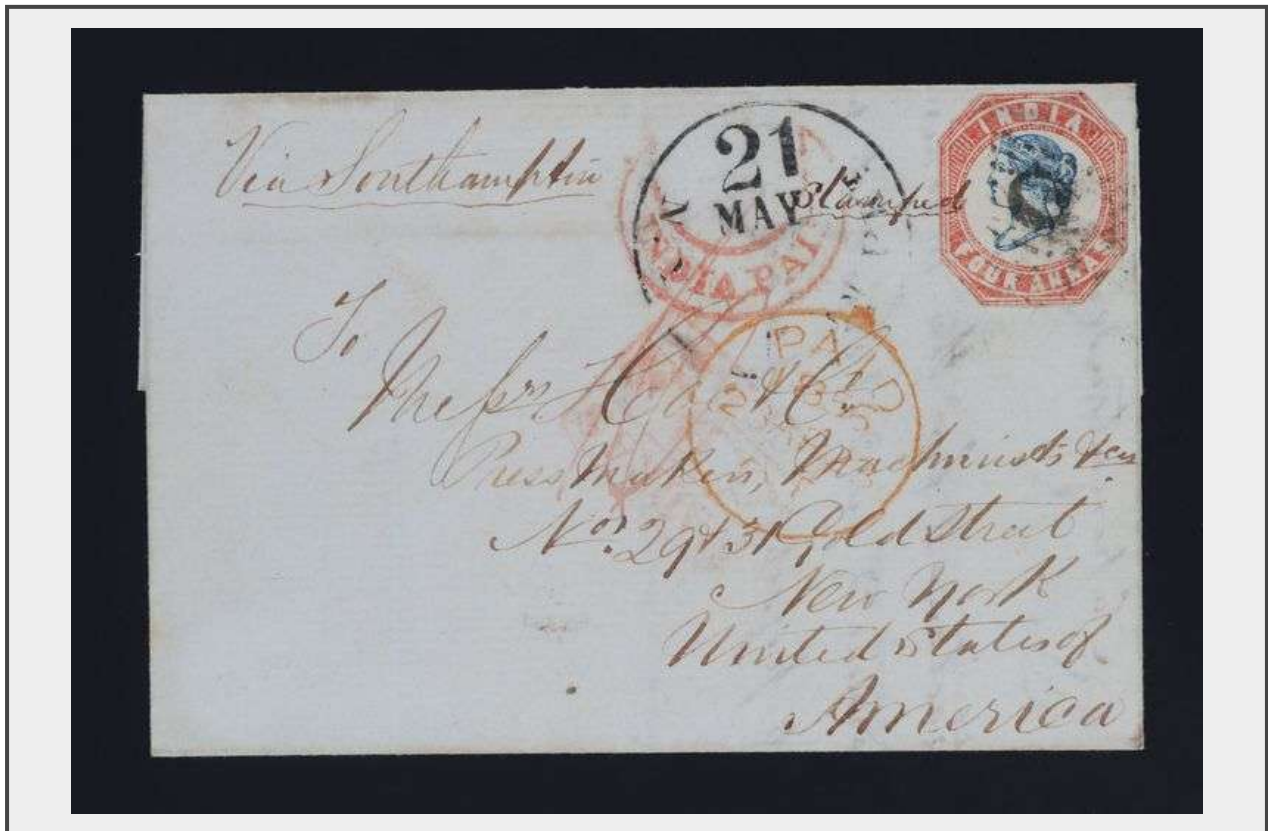 Via Southampton
21
MAY
Stamped
INDIA
FOUR ANNAS
INDIA PAI
PAID
To
Messrs Hoe & Co.
Press Makers, Machinists &ca
Nos. 29 & 31 Gold Street
New York
United States of
America